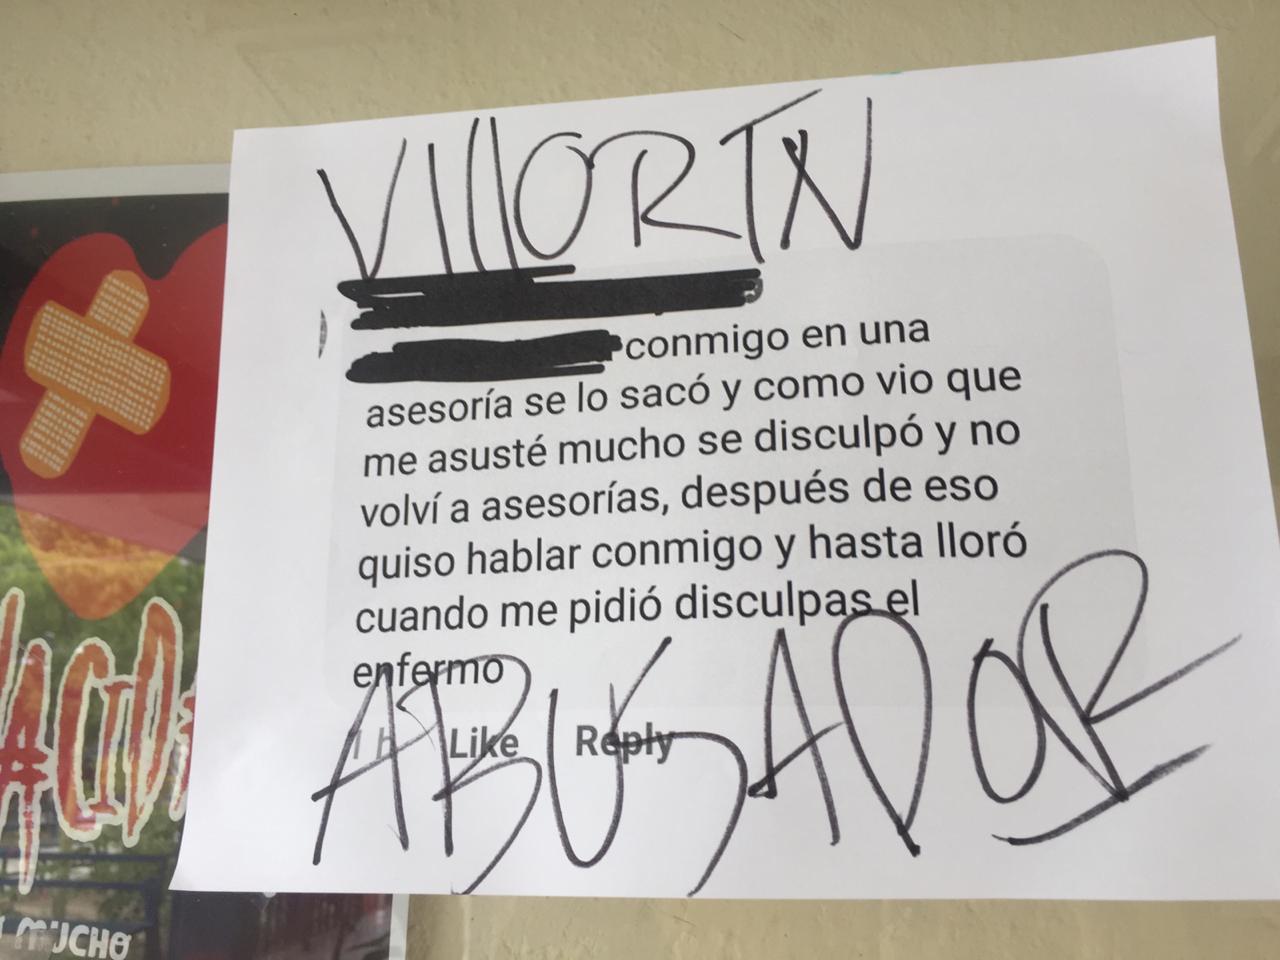 VIllORIN
conmigo en una
asesoría se lo sacó y como vio que
me asusté mucho se disculpó y no
volví a asesorías, después de eso
quiso hablar conmigo y hasta lloró
cuando me pidió disculpas el
enfermo
Like Reply
ABUSADOR
MUCHO